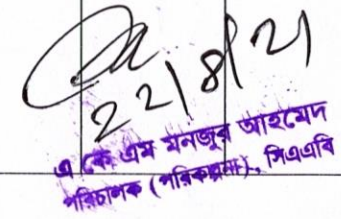 22/8/21
এ কে এম মনজুর আহমেদ
পরিচালক (পরিকল্পনা), সিএএবি